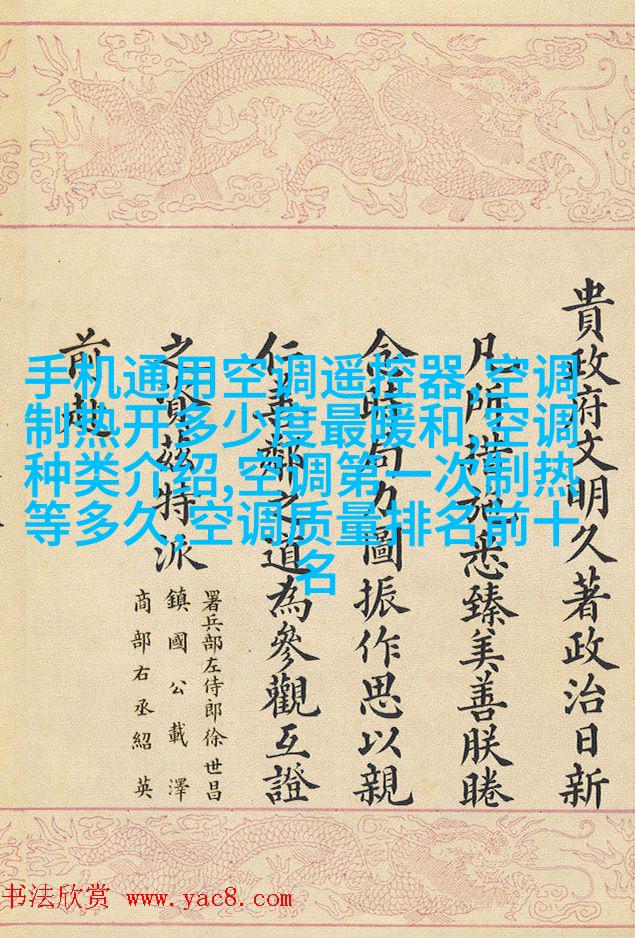 手机通用空调遥控器,空调
制热开多少度最暖和,空调
种类介绍,空调第一次制热
等多久,空调质量排名前十
名
貴政府文明久著政治日新
凡所措施悉臻美善朕睠
念時局力圖振作思以親
仁善鄰之道為參觀互證
之資茲特派
署兵部左侍郎徐世昌
鎮國公載澤
商部右丞紹英
前赴
书法欣赏 www.yac8.com